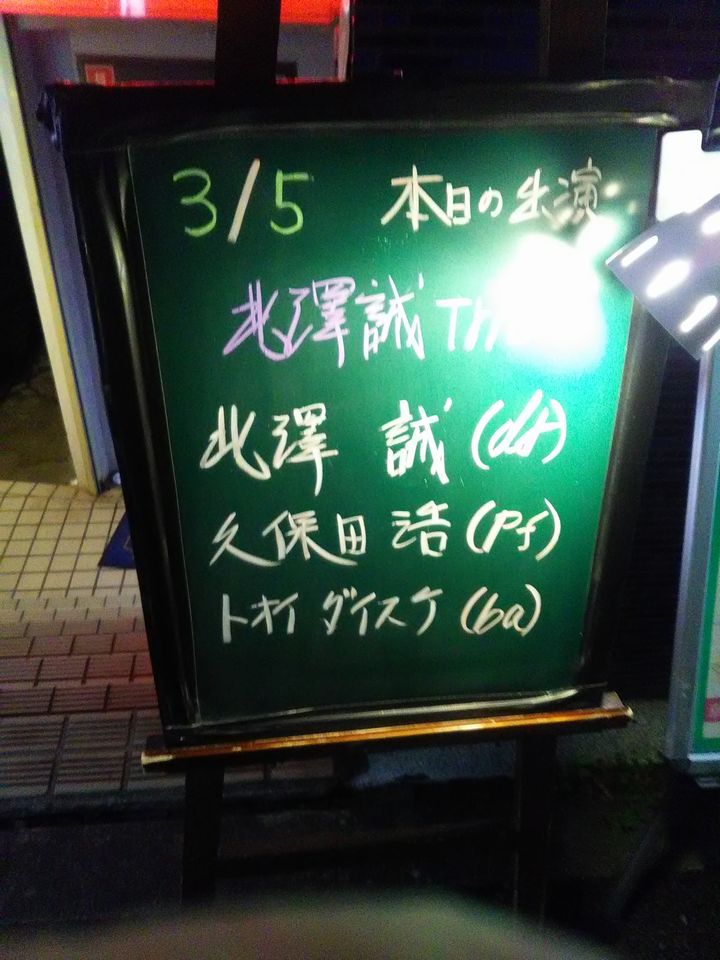 3/5 本日の出演
北澤誠
北澤 誠 (ds)
久保田 浩 (Pf)
トオイ ダイスケ (ba)